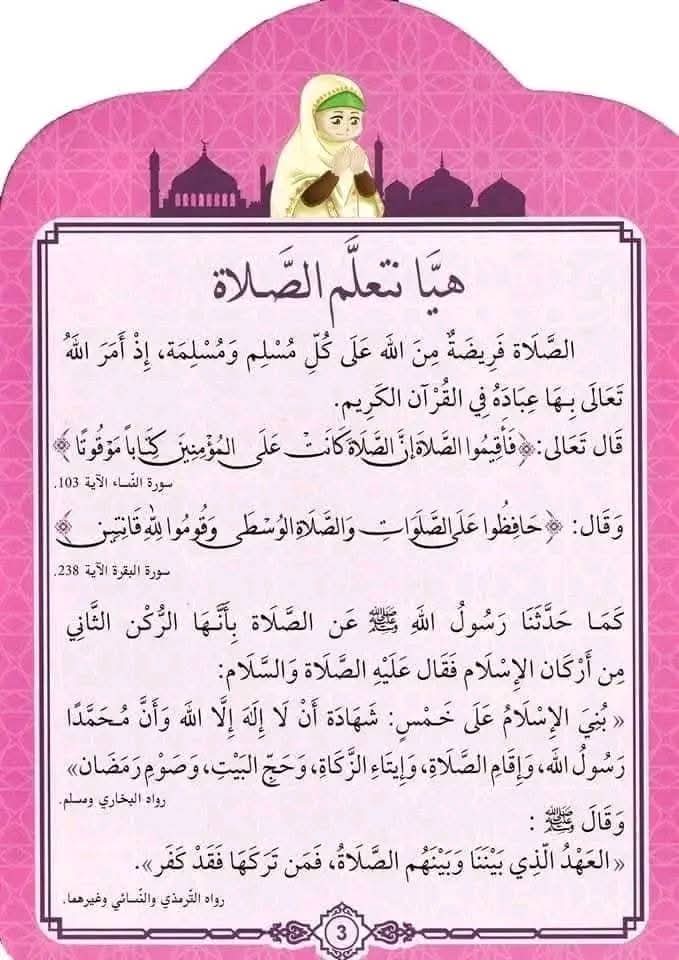 هيَّا نتعلَّم الصَّلاة
الصَّلَاة فَرِيضَةٌ مِنَ الله عَلَى كُلِّ مُسْلِم وَمُسْلِمَة، إِذْ أَمَرَ اللهُ
تَعَالَى بِهَا عِبَادَهُ فِي القُرْآن الكَرِيم.
قَال تَعَالى: ﴿فَأَقِيمُوا الصَّلَاةَ إِنَّ الصَّلَاةَ كَانَتْ عَلَى المُؤْمِنِينَ كِتَاباً مَوْقُوتًا﴾
سورة النّساء الآية 103.
وَقَال: ﴿حَافِظُوا عَلَى الصَّلَوَاتِ وَالصَّلَاةِ الوُسْطَى وَقُومُوا لِلهِ قَانِتِينَ﴾
سورة البقرة الآية 238.
كَمَا حَدَّثَنَا رَسُولُ اللهِ ﷺ عَن الصَّلَاة بِأَنَّهَا الرُّكْن الثَّانِي
مِن أَرْكَان الإِسْلَام فَقَال عَلَيْهِ الصَّلَاة وَالسَّلَام:
« بُنِيَ الإِسْلَامُ عَلَى خَمْسٍ: شَهَادَة أَنْ لَا إِلَهَ إِلَّا الله وَأَنَّ مُحَمَّدًا
رَسُولُ الله، وَإِقَامِ الصَّلَاةِ، وَإِيتَاءِ الزَّكَاةِ، وَحَجِّ البَيْتِ، وَصَوْمِ رَمَضَان»
رواه البخاري ومسلم.
وَقَالَ ﷺ :
« العَهْدُ الّذِي بَيْنَنَا وَبَيْنَهُم الصَّلَاةُ، فَمَن تَرَكَهَا فَقَدْ كَفَر».
رواه التّرمذي والنّسائي وغيرهما.
3